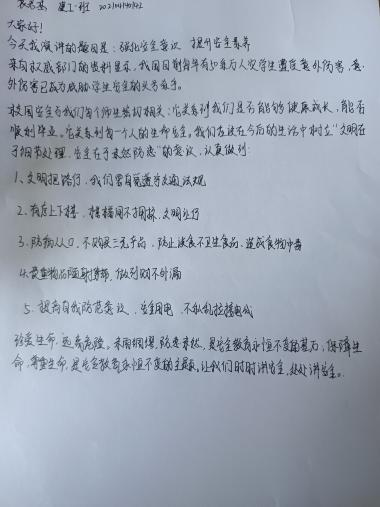 建工·班
大家好!
今天我演讲的题目是:强化安全意识 提升安全素养
来自权威部门的资料显示,我国每年有 万人次学生遭受意外伤害,意
外伤害已成为威胁学生安全的头号杀手。
校园安全与我们每个师生密切相关:它关系到我们是否能够健康成长,能否
顺利毕业。它关系到每一个人的生命安全。我们应该在今后的生活中树立"文明在
于细节处理,安全在于未然防患"的意识,认真做到:
1、文明把路行,我们要自觉遵守交通法规
2、有序上下楼,楼梯间不拥挤,文明让行
3、防病从口入,不购买三无产品,防止误食不卫生食品,造成食物中毒
4.贵重物品随身携带,做到财不外漏
5、提高自我防范意识,安全用电,不私乱拉接电线
珍爱生命,远离危险。未雨绸缪,防患未然,是安全教育永恒不变的基石,保障生
命,尊重生命,是安全教育永恒不变的主题,让我们时时讲安全,处处讲安全。